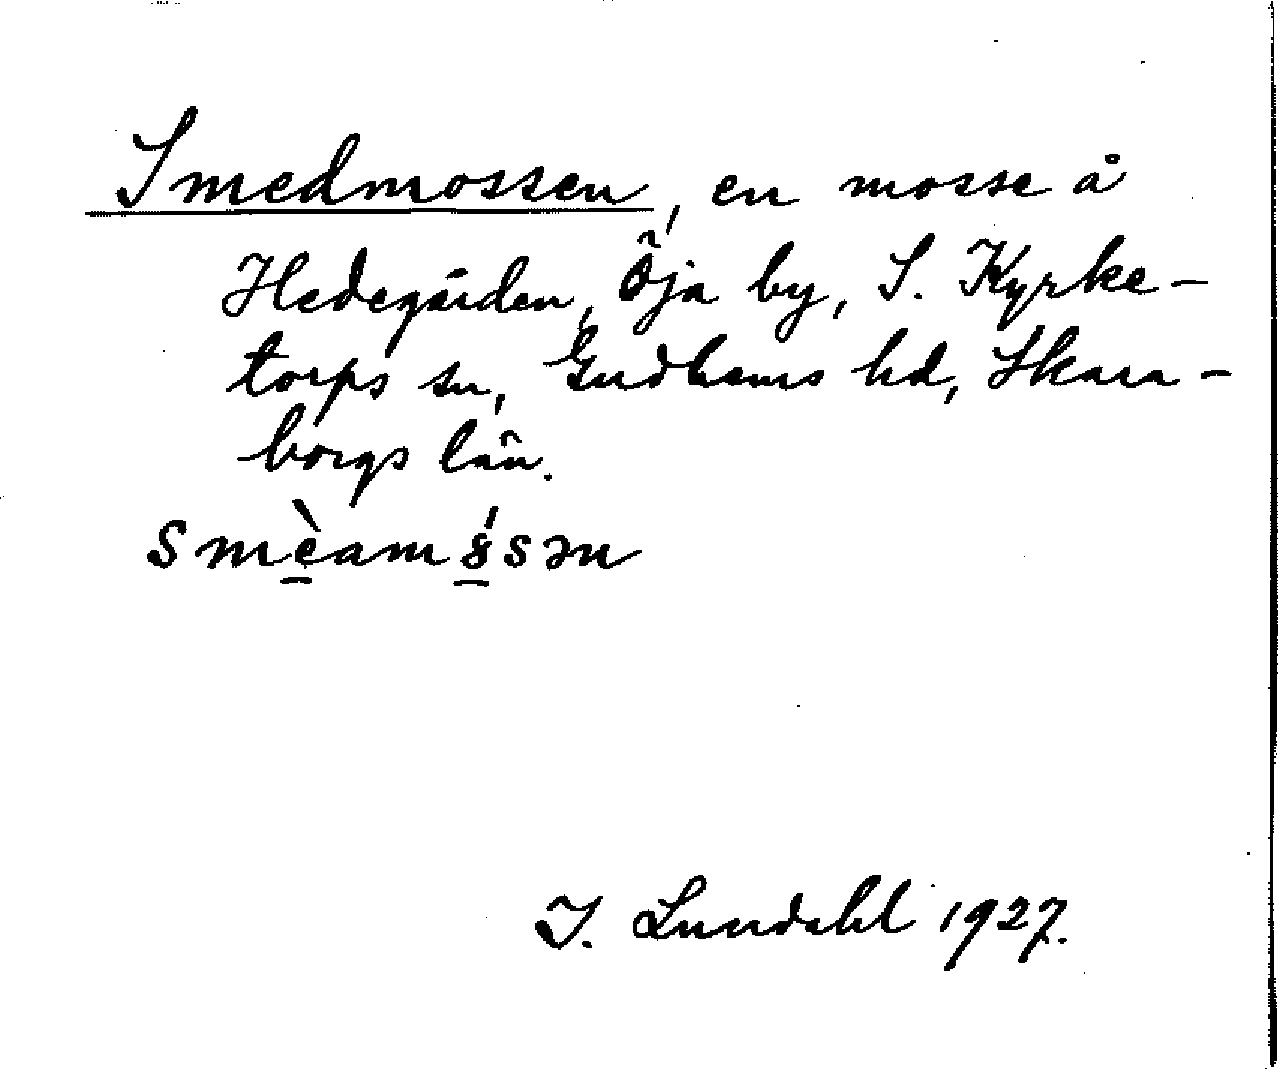 Smedmossen, en mosse å
Hedegården, Öja by, S. Kyrke-
torps sn, Gudhems hd, Skara-
borgs län.
I. Lundahl 1927.